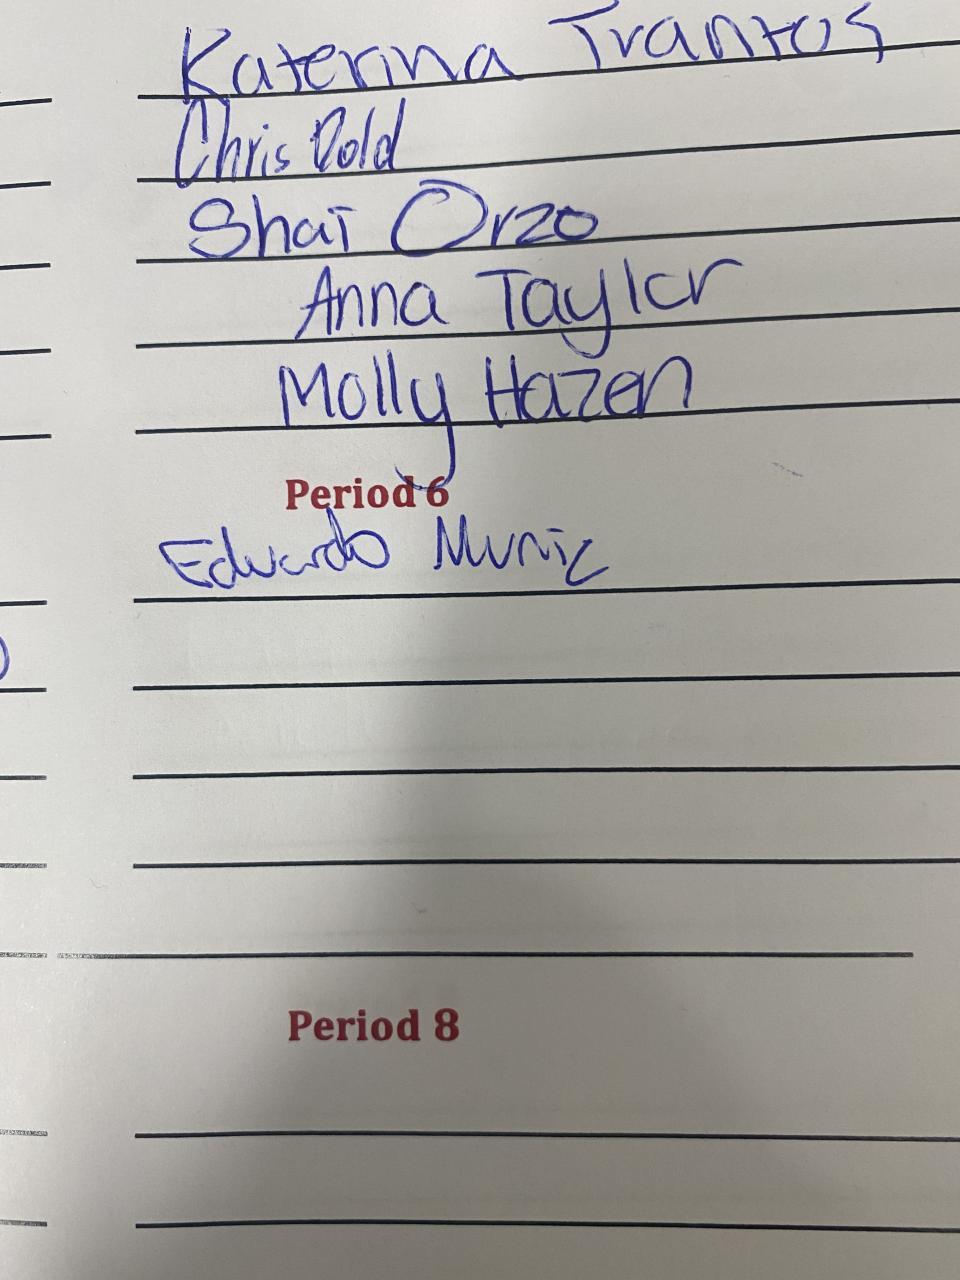 Katerina Trantos
Chris Dold
Shai Orzo
Anna Taylor
Molly Hazen
Period 6
Eduardo Muniz
Period 8